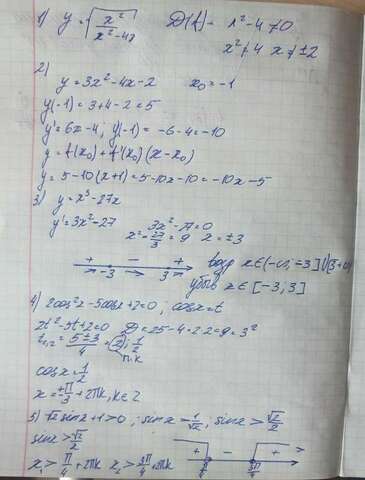 1) y = √(x²/(x²-4)) D(f) - x²-4≠0
x²≠4 x≠±2
2)
y = 3x²-4x-2 x₀=-1
y(-1) = 3+4-2 = 5
y' = 6x-4; y'(-1) = -6-4 = -10
y = f(x₀) + f'(x₀)(x-x₀)
y = 5-10(x+1) = 5-10x-10 = -10x-5
3) y = x³-27x
y' = 3x²-27 3x²-27=0
x² = 27/3 = 9 x = ±3
+ - +
-3 3 возр x∈(-∞;-3]∪[3+∞)
убыв x∈[-3,3]
4) 2cos²x-5cosx+2=0; cosx=t
2t²-5t+2=0 D = 25-4·2·2=9=3²
t₁,₂ = (5±3)/4 = 2; 1/2
п.к
cosx = 1/2
x = ±π/3+2πk, k∈Z
5) √2 sinx+1>0; sinx>1/√2, sinx>√2/2
sinx>√2/2
- +
x₁> π/4+2πk x₂> 3π/4+2πk
π/4 3π/4